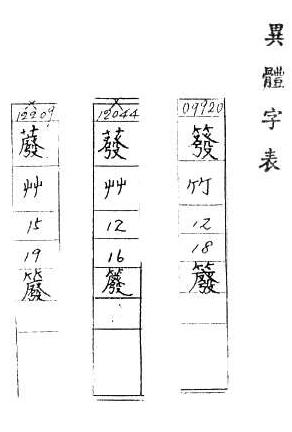 異體字表
09920
竹
12
18
12044
蕟
艸
12
16
12209
艸
15
19